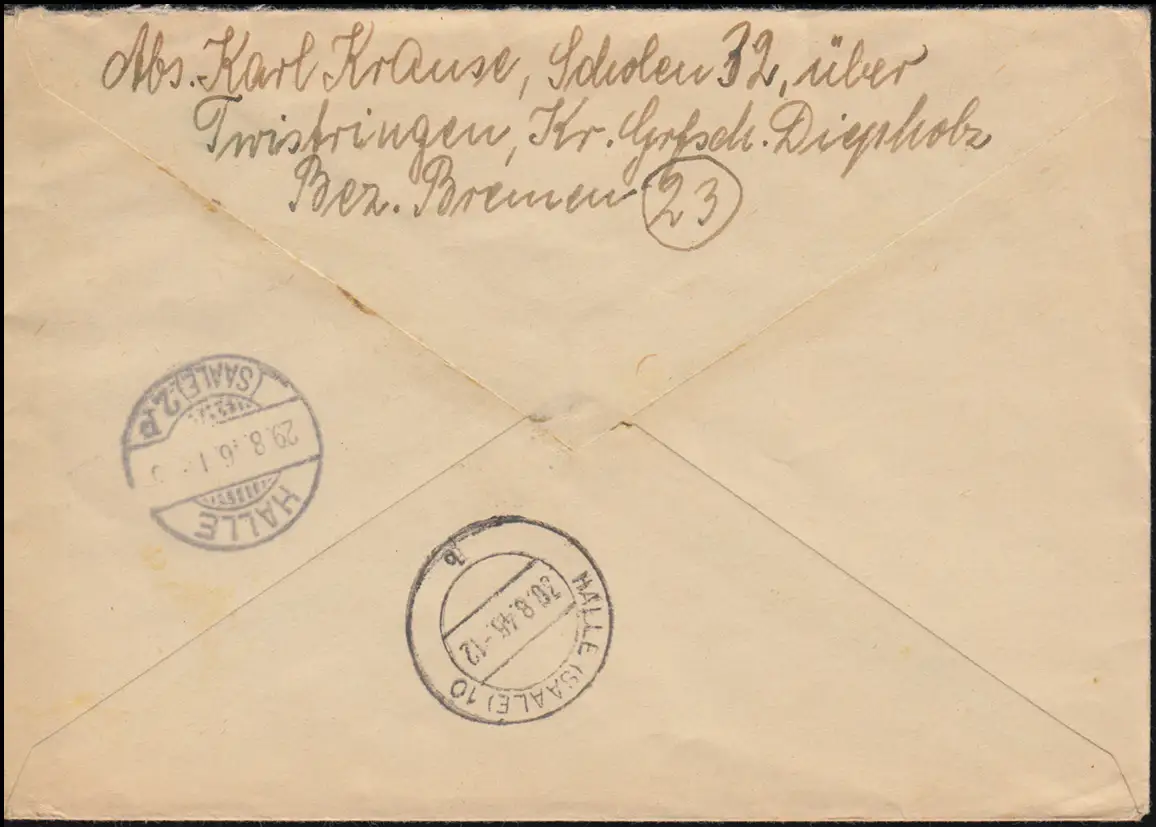 Abs. Karl Krause, Scholen 32, über
Twistringen, Kr. Grfsch. Diepholz
Bez. Bremen 23
HALLE
(SAALE) 2 p
29.8.
HALLE (SAALE) 10
30.8.46.-12
b